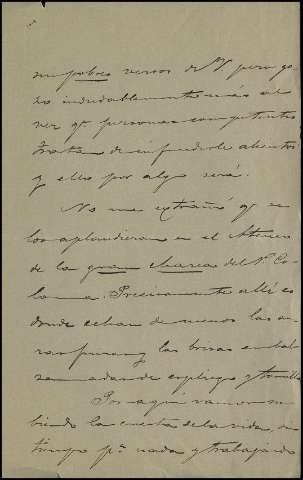 mis pobres versos de V. pero yo
no indudablemente más al
ver q. personas competentes
tratan de infundirle alientos
y ello por algo será.
No me extrañó q. se
los aplaudieran en el Ateneo
de la gran charca del P. Co-
loma. Precisamente allí es
donde echan de menos las au-
ras puras y las brisas embal-
samadas de espliego y tomillo
Por aquí vamos su-
biendo la cuesta de la vida, sin
tiempo pª nada y trabajando